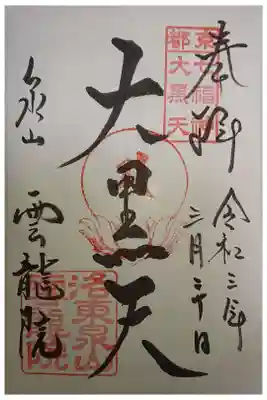 奉拝
令和三年
三月二十日
京都
七福神
大黒天
大黒天
泉山
雲龍院
洛東泉山
雲龍院